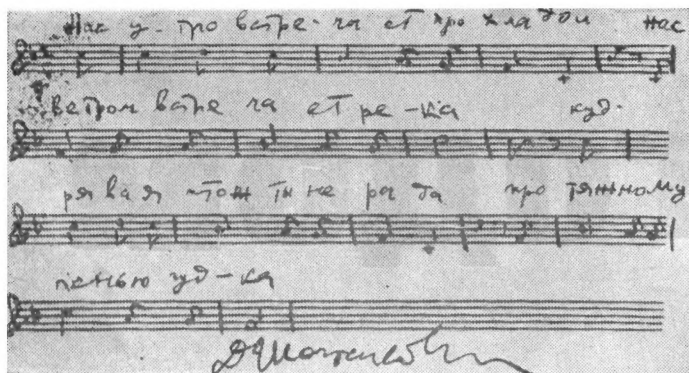 Нас у-тро встре-ча ет про хла дой нас
ветром встре ча ет ре-ка куд-
ря ва я что ж ты не ра да про тяжному
пенью гуд-ка
ДШостакович